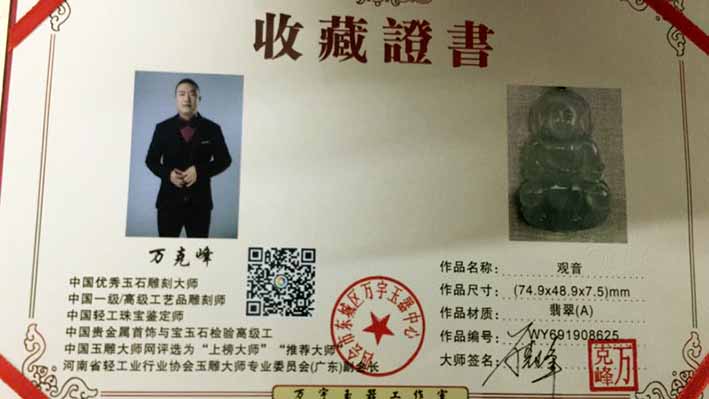 收藏證書
万克峰
中国优秀玉石雕刻大师
中国一级/高级工艺品雕刻师
中国轻工珠宝鉴定师
中国贵金属首饰与宝玉石检验高级工
中国玉雕大师网评选为“上榜大师”“推荐大师”
河南省轻工业行业协会玉雕大师专业委员会(广东)副会长
作品名称: 观音
作品尺寸: (74.9x48.9x7.5)mm
作品材质: 翡翠(A)
作品编号: WY691908625
大师签名:
万克峰
四会市东城区万宇玉器中心
万宇玉器工作室